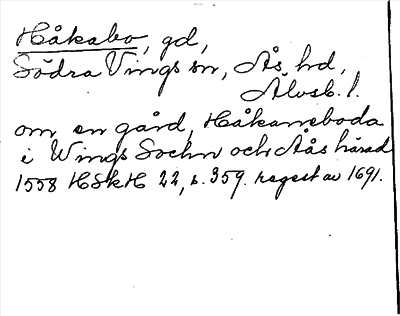 Håkabo, gd,
Södra Vings sn, Ås hd,
Älvsb. l.
om en gård, Håkaneboda
i Wings Sochn och Åås härad
1558 HSkH 22, s. 359. regest av 1691.